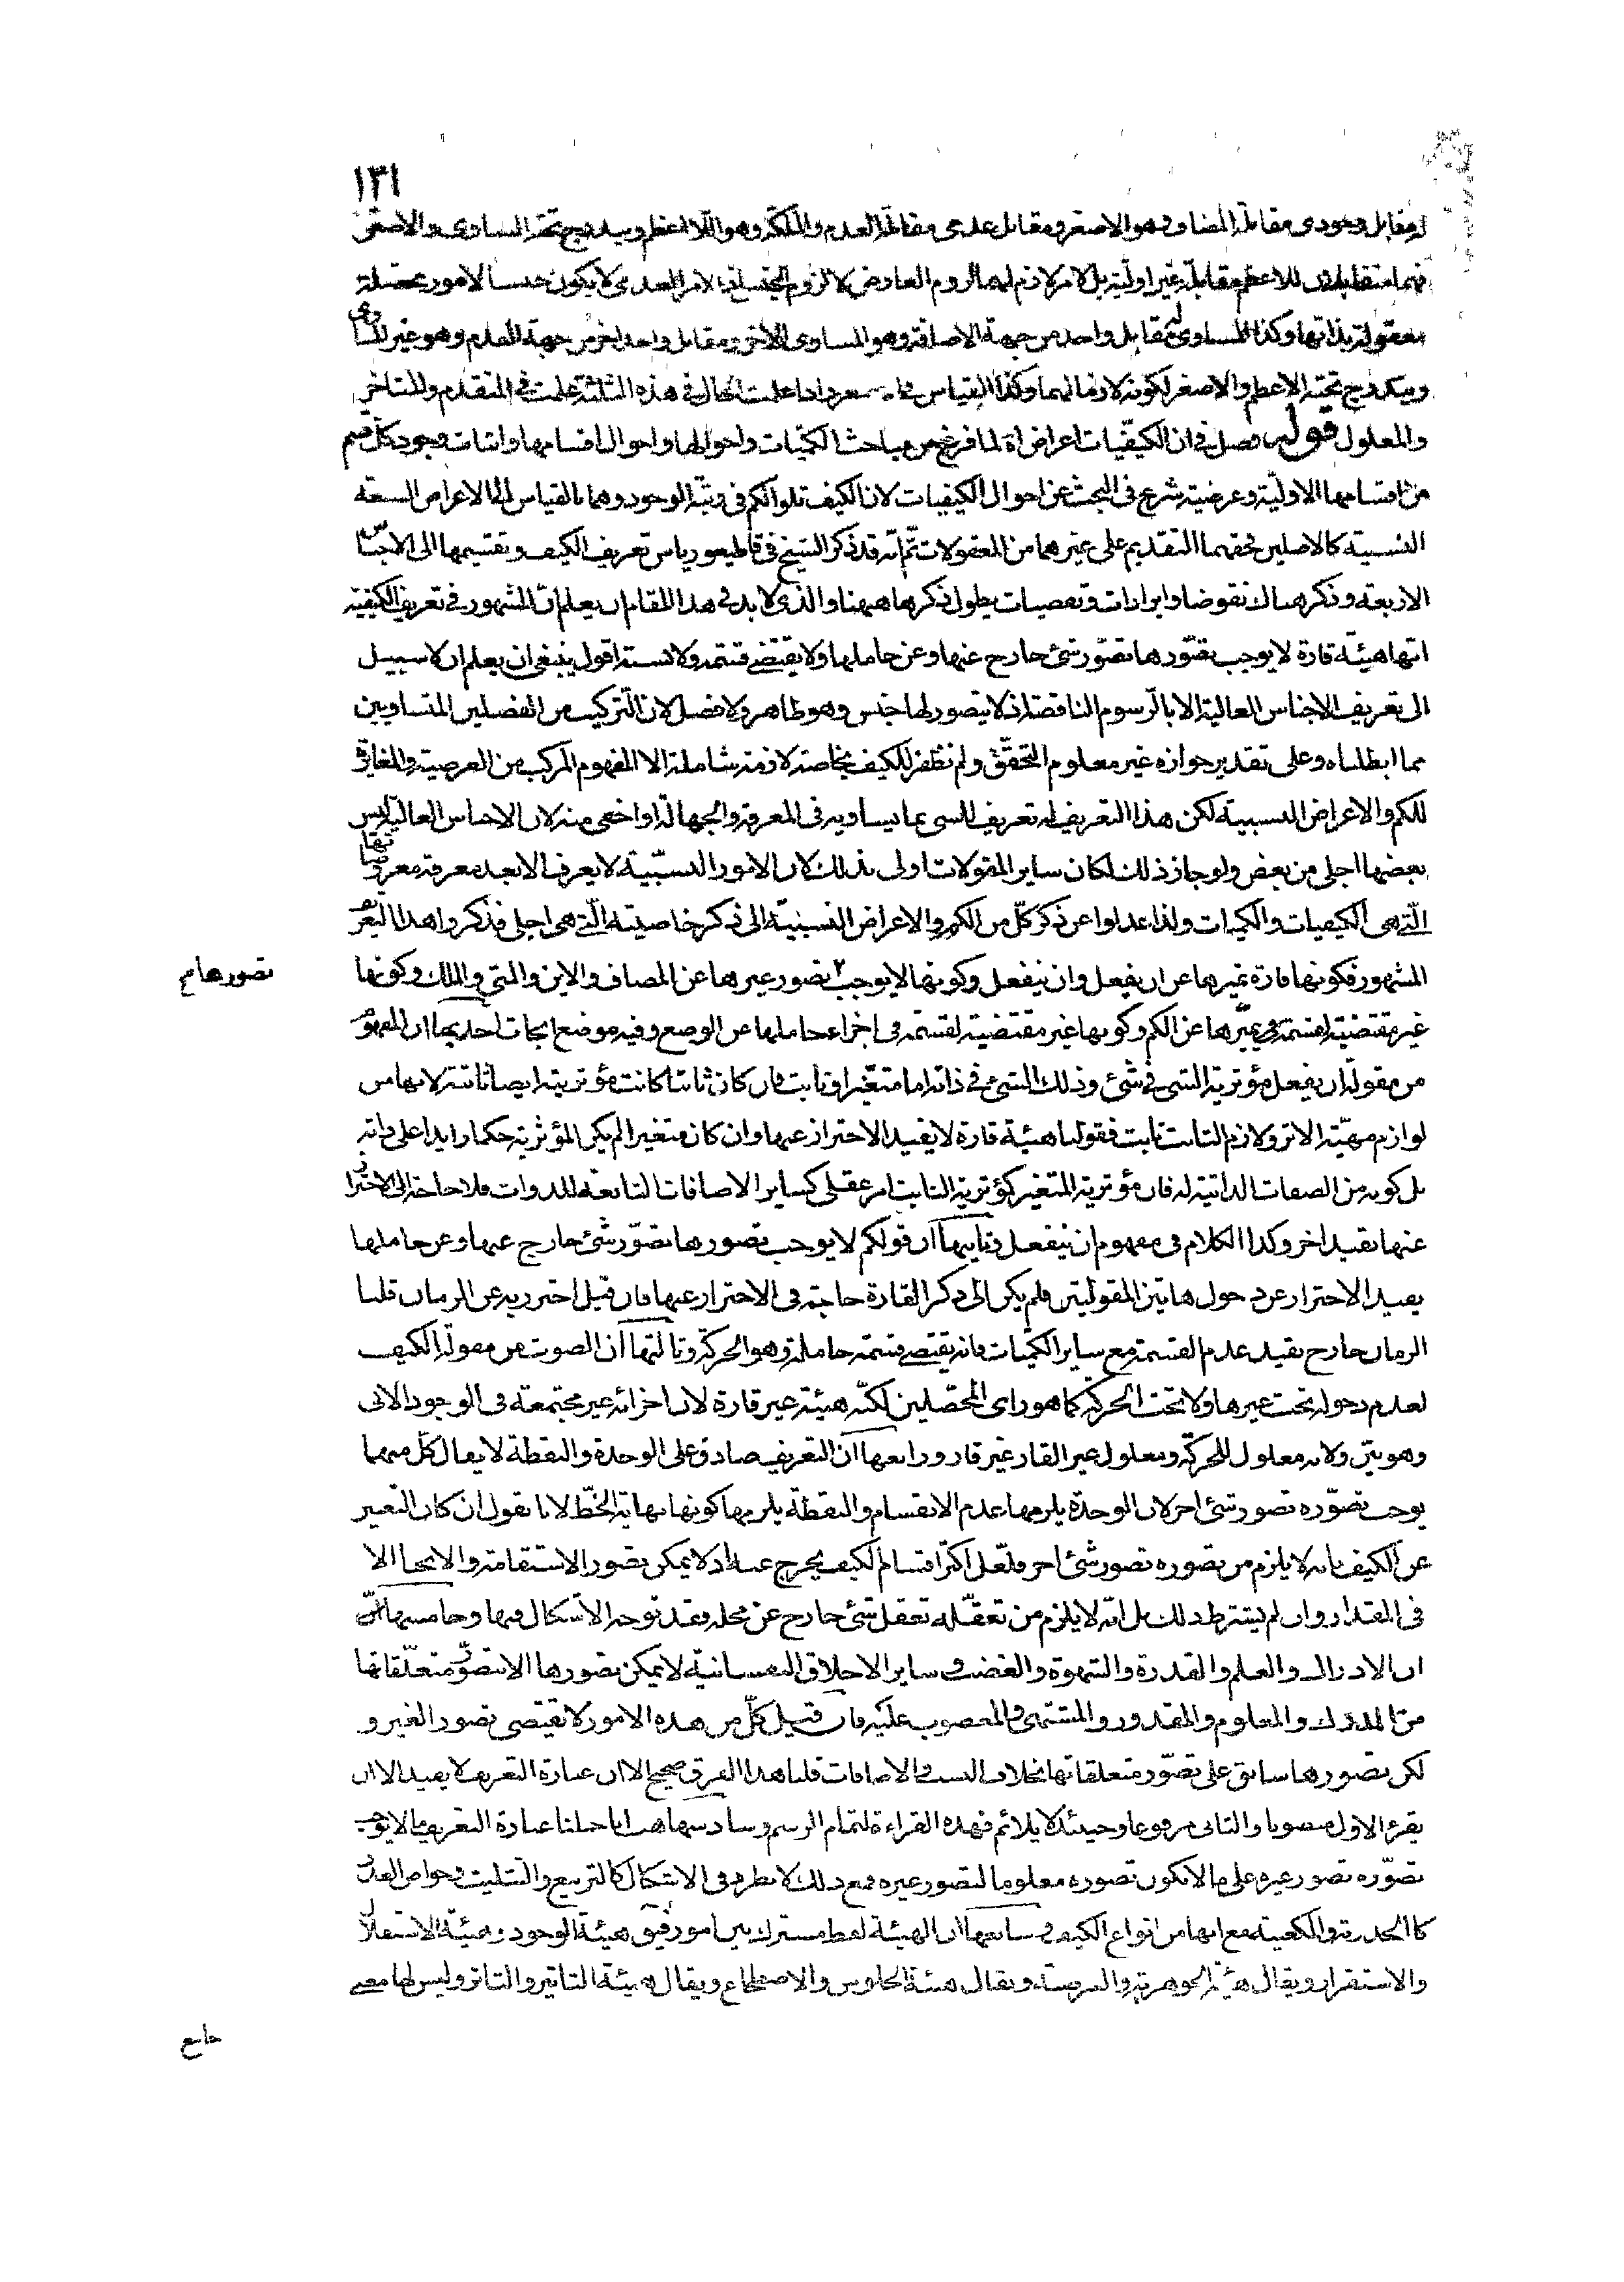 ١٣١
له مقابل وجودى مقابلة المضاف وهو الاصغر ومقابل عدمى مقابلة العدم والملكة وهو اللا اعظم ويندرج تحته المساوى والاصغر
فهما متقابلان للاعظم مقابلة غير اولية بل لامر لازم لهما لزوم العارض لا لزوم الجنس فان الامر العدمى لا يكون جنسا لامور محصلة
معقولة بذاتها وكذا المساوى له مقابل واحد من جهة الاضافة وهو المساوى الاخر ومقابل واحد اخر من جهة العدم وهو غير المساوى
ويندرج تحته الاعظم والاصغر لكونه لازما لهما وكذا القياس فى الاصغر واذا علمت الحال فى هذه الثلثة علمت فى المتقدم والمتاخر
والمعلول قوله فصل فى ان الكيفيات اعراض اه لما فرغ من مباحث الكميات واحوالها واحوال اقسامها واثبات وجود كل قسم
من اقسامها الاولية وعرضيته شرع فى البحث عن احوال الكيفيات لان الكيف تلو الكم فى رتبة الوجود وهما بالقياس الى الاعراض السبعة
النسبية كالاصلين فحقهما التقديم على غيرهما من المقولات ثم انه قد ذكر الشيخ فى قاطيغورياس تعريف الكيف وتقسيمها الى الاجناس
الاربعة وذكر هناك نقوضا وايرادات وتفصيات يطول ذكرها هيهنا والذى لا بد فى هذا المقام ان يعلم ان المشهور فى تعريف الكيفية
انها هيئة قارة لا يوجب تصورها تصور شئ خارج عنها وعن حاملها ولا يقتضى قسمة ولا نسبة اقول ينبغى ان يعلم ان لا سبيل
الى تعريف الاجناس العالية الا بالرسوم الناقصة اذ لا يتصور لها جنس وهو ظاهر ولا فصل لان التركيب من الفصلين المتساويين
مما ابطلناه وعلى تقدير جوازه غير معلوم التحقق ولم نظفر للكيف بخاصة لازمة شاملة الا المفهوم المركب من العرضية والمغايرة
للكم والاعراض النسبية لكن هذا التعريف له تعريف للشئ بما يساويه فى المعرفة والجهالة او اخفى منه لان الاجناس العالية ليس
بعضها اجلى من بعض ولو جاز ذلك لكان ساير المقولات اولى بذلك لان الامور النسبية لا يعرف الا بعد معرفة معروضاتها
التى هى الكيفيات والكميات ولذا عدلوا عن ذكر كل من الكم والاعراض النسبية الى ذكر خاصيته التى هى اجلى فذكروا هذا التعريف
المشهور فكونها قارة تميزها عن ان يفعل وان ينفعل وكونها لا يوجب تصور غيرها عن المضاف والاين والمتى والملك وكونها
تصورها م
غير مقتضية لقسمة تميزها عن الكم وكونها غير مقتضية لقسمة فى اجزاء حاملها عن الوضع وفيه موضع ابحاث احديها ان المفهوم
من مقولة ان يفعل مؤثرية الشئ فى شئ وذلك الشئ فى ذاته اما متغير او ثابت فان كان ثابتا كانت مؤثريته ايضا ثابتة لانها من
لوازم مهية الاثر ولازم الثابت ثابت فقولنا هيئة قارة لا يفيد الاحتراز عنها وان كان متغيرا لم يكن المؤثرية حكما زايدا على ذاته
بل كونه من الصفات الذاتية له فان مؤثرية المتغير كمؤثرية الثابت امر عقلى كساير الاضافات التابعة للذوات فلا حاجة الى الاحتراز
عنها بقيد اخر وكذا الكلام فى مفهوم ان ينفعل وثانيها ان قولكم لا يوجب تصورها تصور شئ خارج عنها وعن حاملها
يفيد الاحتراز عن دخول هاتين المقولتين فلم يكن الى ذكر القارة حاجة فى الاحتراز عنها فان قيل احترز به عن الزمان قلنا
الزمان خارج بقيد عدم القسمة مع ساير الكميات فانه يقتضى قسمة حاملة وهو الحركة وثالثها ان الصوت من مقولة الكيف
لعدم دخوله تحت غيرها ولا تحت الحركة كما هو راى المحصلين لكنه هيئة غير قارة لان اجزائه غير مجتمعة فى الوجود الانى
وهو بين ولانه معلول للحركة ومعلول غير القار غير قار ورابعها ان التعريف صادق على الوحدة والنقطة لا يقال كل منهما
يوجب تصوره تصور شئ اخر لان الوحدة يلزمها عدم الانقسام والنقطة يلزمها كونها نهاية الخط لانا نقول ان كان التعبير
عن الكيف بانه لا يلزم من تصوره تصور شئ اخر فلعل اكثر اقسام الكيف يخرج عنه اذ لا يمكن تصور الاستقامة والانحنا الا
فى المقدار وان لم يشترط ذلك بل انه لا يلزم من تعقله تعقل شئ خارج عن محله فقد توجه الاشكال فيها وخامسها ان
ان الادراك والعلم والقدرة والشهوة والغضب وساير الاخلاق النفسانية لا يمكن تصورها الا بتصور متعلقاتها
من المدرك والمعلوم والمقدور والمشتهى والمغضوب عليه فان قيل كل من هذه الامور لا يقتضى تصور الغير و
لكن تصورها سابق على تصور متعلقاتها بخلاف النسب والاضافات قلنا هذا الفرق صحيح الا ان عبارة التعريف لا يفيد الا ان
يقرء الاول منصوبا والثانى مرفوعا وحينئذ لا يلائم فهذه القراءة لتمام الرسم وسادسها هب انا حملنا عبارة التعريف بما لا يوجب
تصوره تصور غيره على ما لا يكون تصوره معلوما لتصور غيره فمع ذلك لا يطرد فى الاشكال كالتربيع والتثليث وخواص العدد
كالجذرية والكعبية مع انها من انواع الكيف وسابعها ان الهيئة لفظ مشترك بين امور فيق هيئة الوجود وهيئة الاستقلال
والاستقرار ويقال هيئة الجوهرية والعرضية ويقال هيئة الجلوس والاضطجاع ويقال هيئة التاثير والتاثر وليس لها معنى
جامع